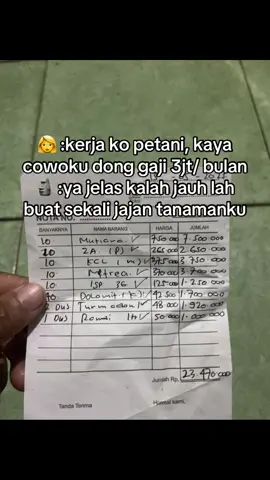 👩 :kerja ko petani, kaya
cowoku dong gaji 3jt/ bulan
:ya jelas kalah jauh lah
buat sekali jajan tanamanku
NOTA NO.
BANYAKNYA NAMA BARANG HARGA JUMLAH
10 Mutiara 750 000 7.500 000
10 ZA (P) 265 000 2.650 000
10 KCL (M) 375 000 3.750 000
10 370 000 3.700 000
10 ISP 36 125 000 1.250 000
40 Dolomit (K) 42.500 1.700 000
2 Dus 48 000 1.920 000
1 Dus 50 000 1.000 000
Jumlah Rp. 23.470 000
Tanda Terima Hormat kami,